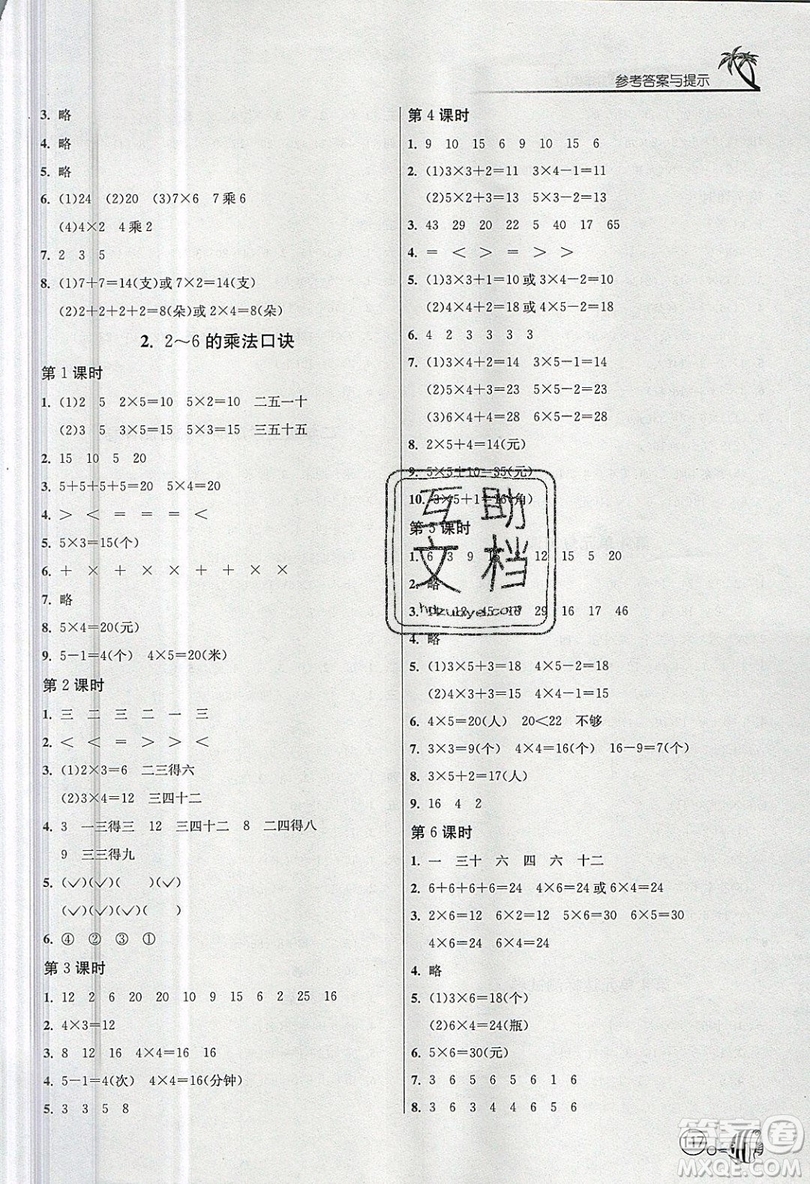 参考答案与提示
3. 略
4. 略
5. 略
6. (1)24 (2)20 (3)7×6 7乘6
(4)4×2 4乘2
7. 2 3 5
8. (1)7+7=14(支)或7×2=14(支)
(2)2+2+2+2=8(朵)或2×4=8(朵)
2. 2～6的乘法口诀
第1课时
1. (1)2 5 2×5=10 5×2=10 二五一十
(2)3 5 3×5=15 5×3=15 三五十五
2. 15 10 5 20
3. 5+5+5+5=20 4×5=20 5×4=20
4. ＞ ＜ ＝ ＝ ＝ ＜
5. 5×3=15(个)
6. ＋ × ＋ － × × × ×
7. 略
8. 5×4=20(元)
9. 5-1=4(个) 4×5=20(米)
第2课时
1. 三 二 三 二 一 三
2. ＜ ＜ ＝ ＞ ＞ ＜
3. (1)2×3=6 二三得六
(2)3×4=12 三四十二
4. 3 一三得三 12 三四十二 8 二四得八
9 三三得九
5. (✓)(✓)( )(✓)
(✓)(✓)(✓)( )
6. ④ ② ③ ①
第3课时
1. 12 2 6 20 20 9 10 9 25 16
2. 4×3=12
3. 8 12 16 4×4=16 16
4. 5-1=4(次) 4×4=16(分钟)
5. 3 3 5 8
第4课时
1. 9 10 15 6 9 10 15 6
2. (1)3×3+2=11 3×4-1=11
(2)5×2+3=13 5×3-2=13
3. 43 29 20 22 5 40 17 65
4. ＝ ＜ ＞ ＝ ＞ ＞
5. (1)3×3+1=10或3×4-2=10
(2)4×4+2=18或4×5-2=18
6. 4 2 3 3 3 3
7. (1)3×4+1=13 3×5-2=13
(2)5×4+3=23 5×5-2=23
(3)6×4+4=28 6×5-2=28
8. 2×5+4=14(元)
9. 5×5+10=35(元)
10. 3×5+1=16(角)
第5课时
1. 6 3 9 12 15 5 20
2. 略
3. 29 16 17 46
4. 略
5. (1)3×5+3=18 4×5-2=18
(2)3×4+3=15 4×4-1=15
6. 4×5=20(人) 20＜22 不够
7. 3×3=9(个) 4×4=16(个) 16-9=7(个)
8. 3×5+2=17(人)
9. 16 4 2
第6课时
1. 一 三十 六 四 六 十二
2. 6+6+6+6=24 4×6=24或6×4=24
3. 2×6=12 3×6=18 5×6=30
4×6=24 6×4=24
4. 略
5. (1)3×6=18(个)
(2)4×6=24(瓶)
6. 5×6=30(元)
7. 3 6 5 6 5 6 1 6
8. 3 6 6 6 6 6 6 6
互助
文档
117
答案圈
MXQE.COM